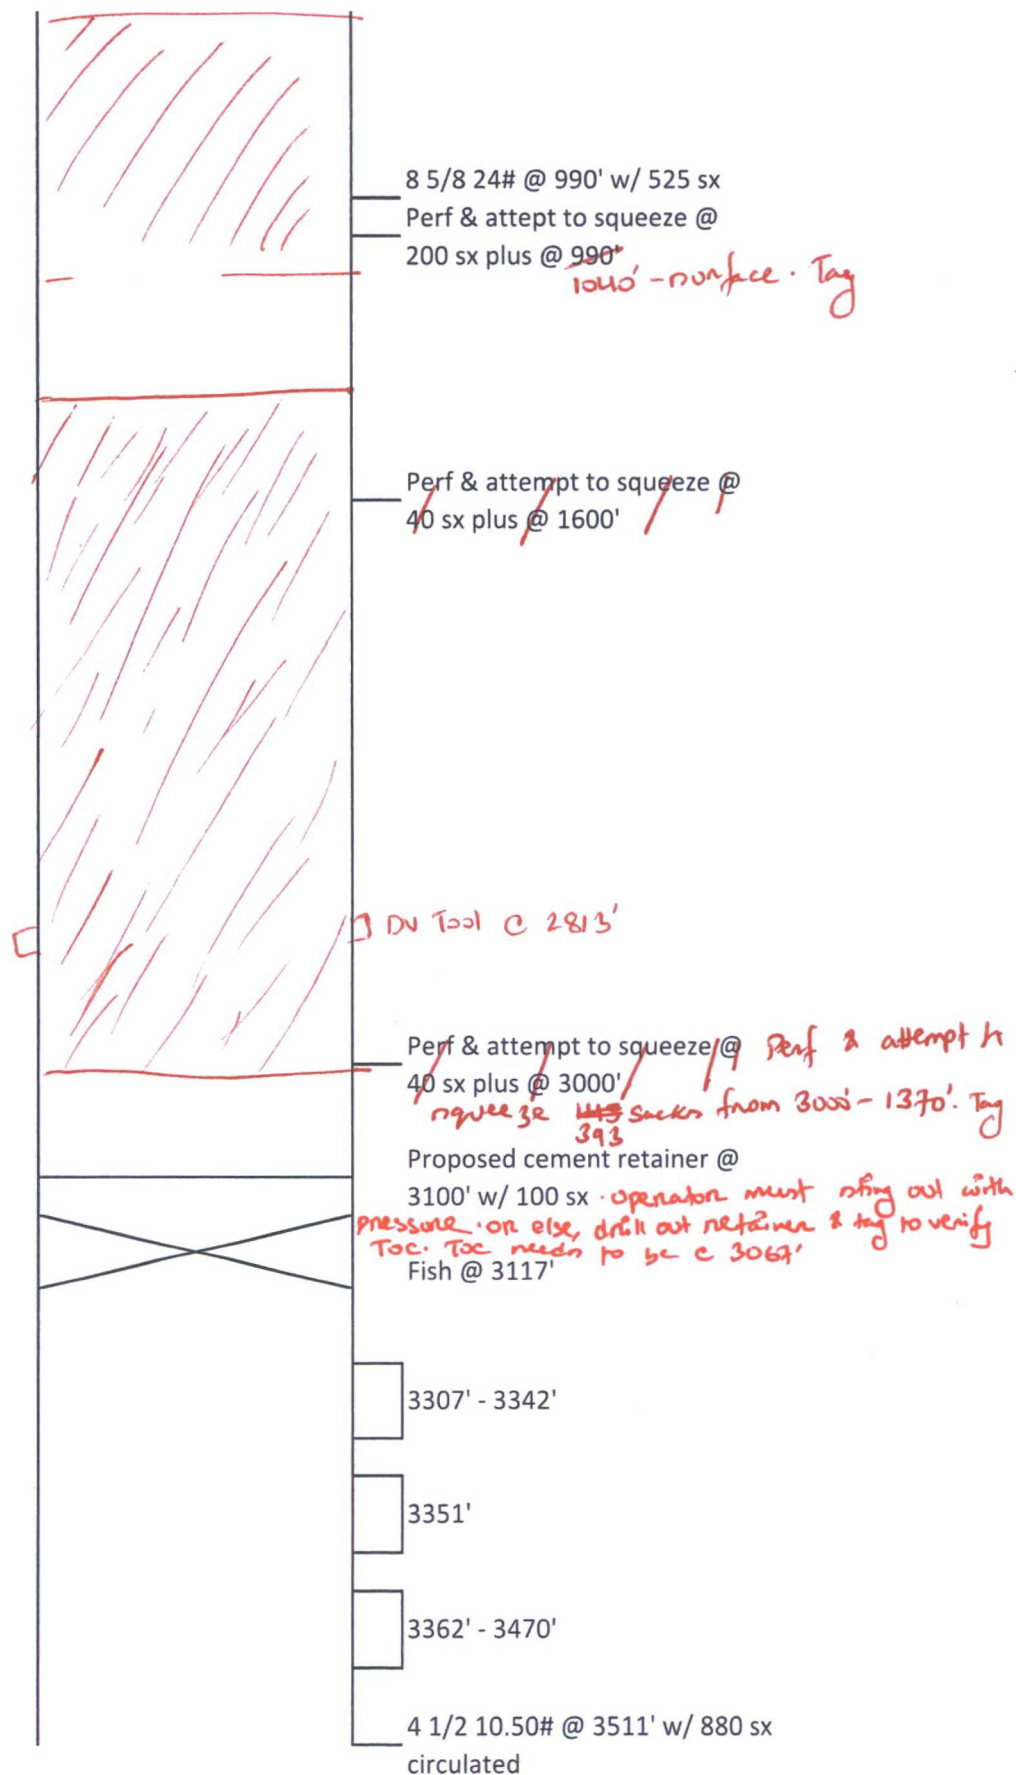 8 5/8 24# @ 990' w/ 525 sx
Perf & attept to squeeze @
200 sx plus @ 990'
1040' - surface. Tag
Perf & attempt to squeeze @
40 sx plus @ 1600'
DV Tool @ 2813'
Perf & attempt to squeeze @ Perf & attempt to
40 sx plus @ 3000'
squeeze sacks from 3000'-1370'. Tag
393
Proposed cement retainer @
3100' w/ 100 sx . operator must sting out with
pressure. or else, drill out retainer & tag to verify
TOC. TOC needs to be @ 3067'
Fish @ 3117'
3307' - 3342'
3351'
3362' - 3470'
4 1/2 10.50# @ 3511' w/ 880 sx
circulated